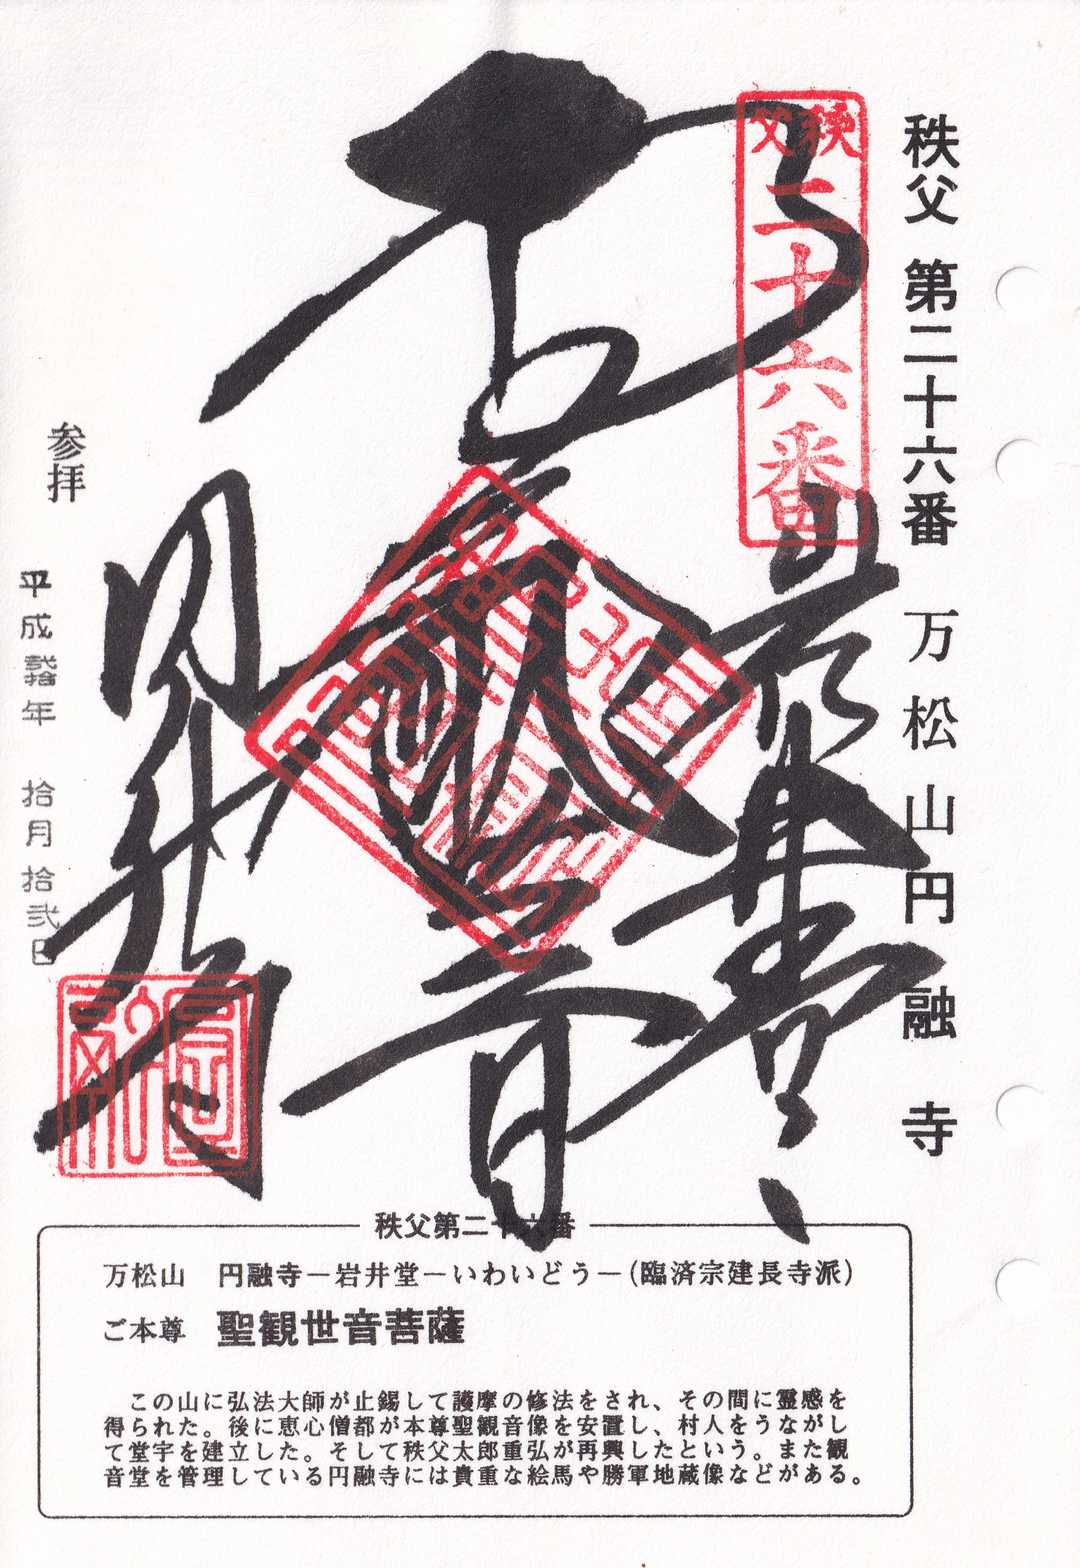 秩父 第二十六番 万松山円融寺
秩父
二十六番
岩井堂
円融寺
参拝
平成拾年 拾月拾弐日
秩父第二十六番
万松山 円融寺－岩井堂－いわいどう－(臨済宗建長寺派)
ご本尊 聖観世音菩薩
この山に弘法大師が止錫して護摩の修法をされ、その間に霊感を
得られた。後に恵心僧都が本尊聖観音像を安置し、村人をうながし
て堂宇を建立した。そして秩父太郎重弘が再興したという。また観
音堂を管理している円融寺には貴重な絵馬や勝軍地蔵像などがある。